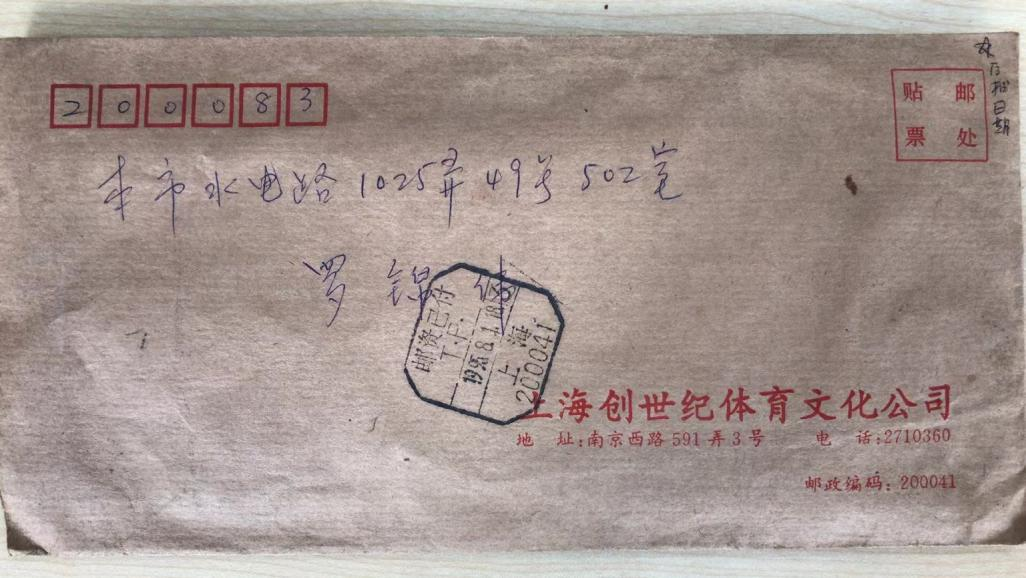 200083
贴 邮
票 处
日期
本市水电路1025弄49号502室
罗锦
邮资已付
T.P.
上海
200041
上海创世纪体育文化公司
地 址:南京西路591弄3号 电 话:2710360
邮政编码:200041